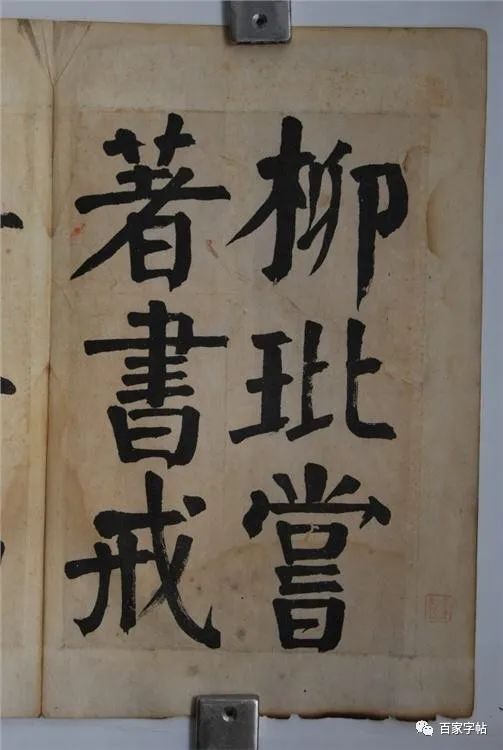 柳玭嘗
著書戒
百家字帖